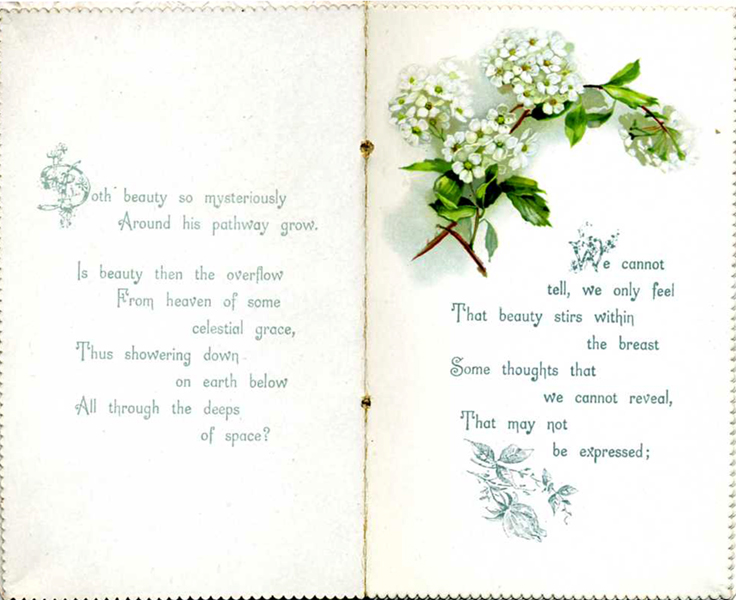 Doth beauty so mysteriously
Around his pathway grow.
Is beauty then the overflow
From heaven of some
celestial grace,
Thus showering down
on earth below
All through the deeps
of space?
We cannot
tell, we only feel
That beauty stirs within
the breast
Some thoughts that
we cannot reveal,
That may not
be expressed;